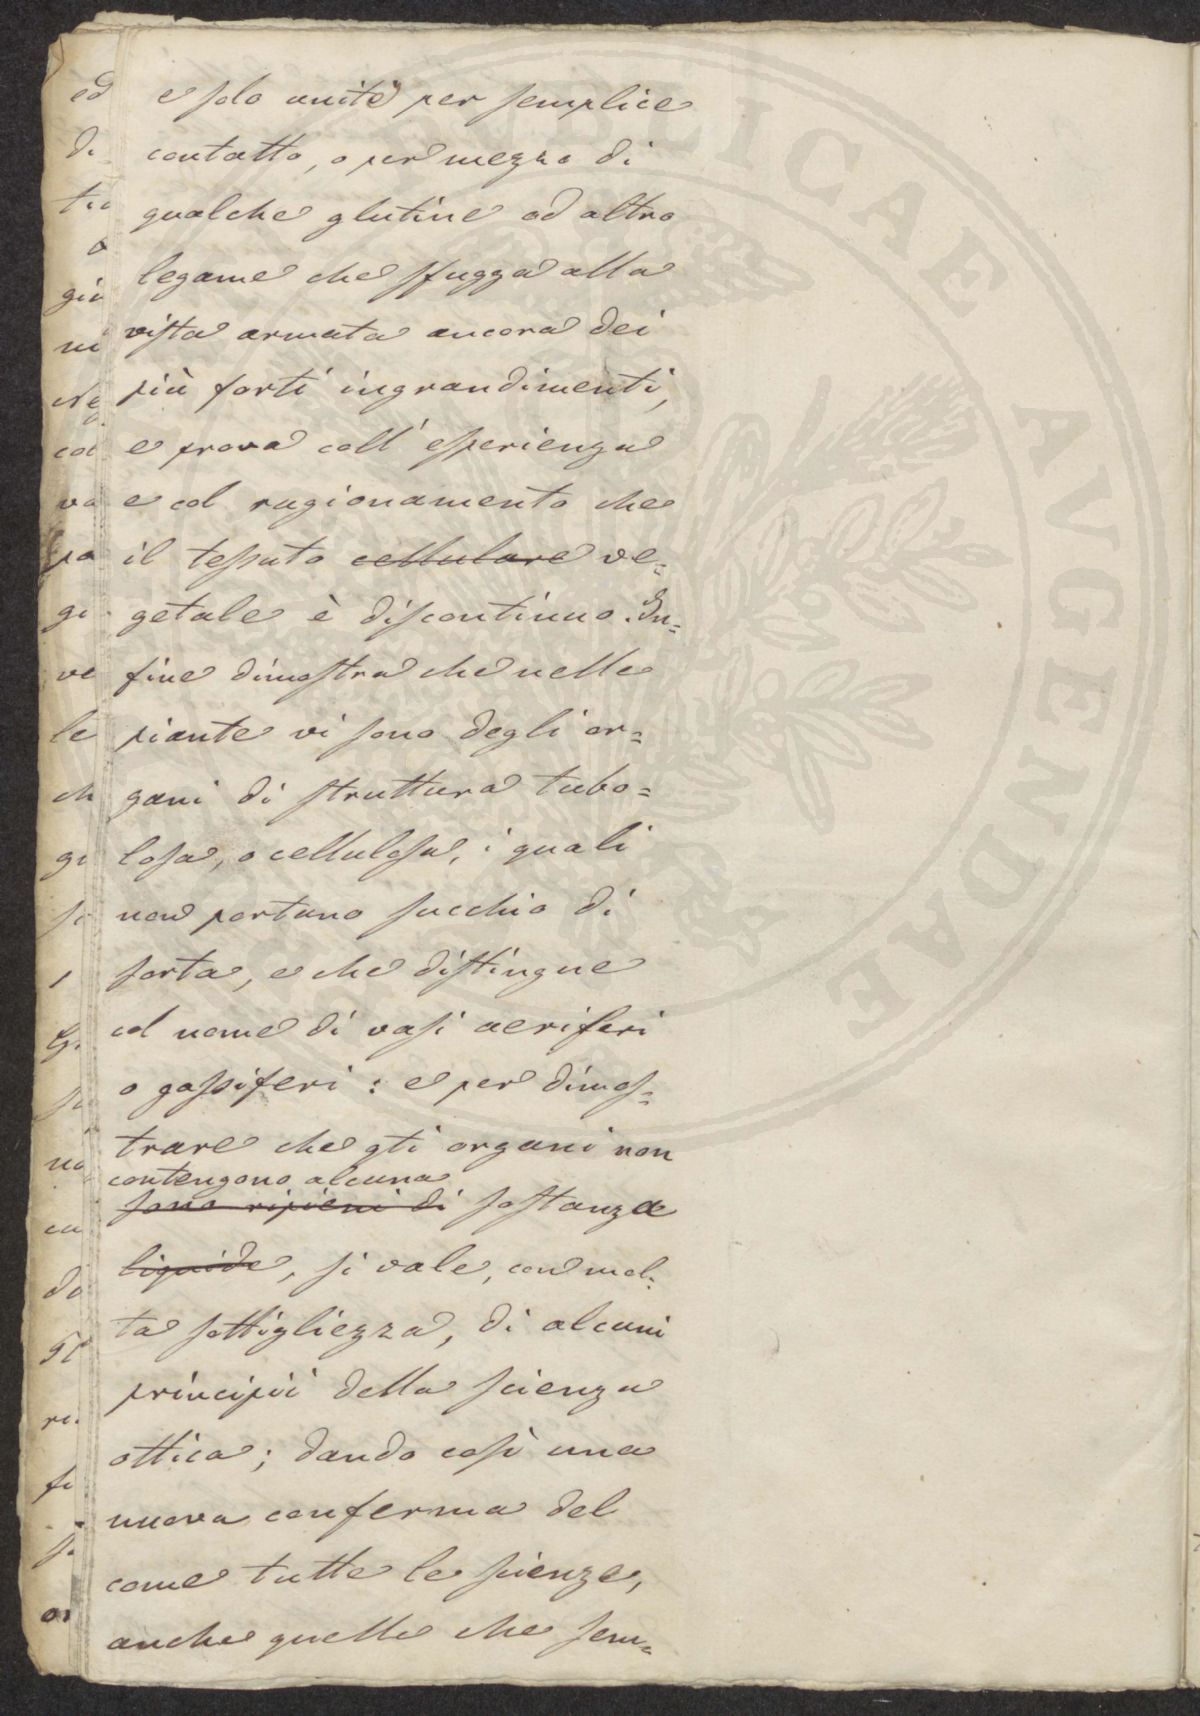 e solo unite per semplice
contatto, o per mezzo di
qualche glutine od altro
legame che sfugga alla
vista armata ancora dei
più forti ingrandimenti,
e prova coll' esperienza
e col ragionamento che
il tessuto cellulare ve=
getale è discontinuo. In=
fine dimostra che nelle
piante vi sono degli or=
gani di struttura tubo=
losa, o cellulosa, i quali
non portano succhio di
sorta, e che distingue
col nome di vasi aeriferi
o gassiferi: e per dimos=
trare che gti organi non
contengono alcuna
sono ripieni di sostanza
liquide, si vale, con mol=
ta sottigliezza, di alcuni
principii della scienza
ottica; dando così una
nuova conferma del
come tutte le scienze,
anche quelle che sem=
ed
di
o
giu
ni
col
va
pa
ge
ve
le
ch
PVBLICAE AVGENDAE